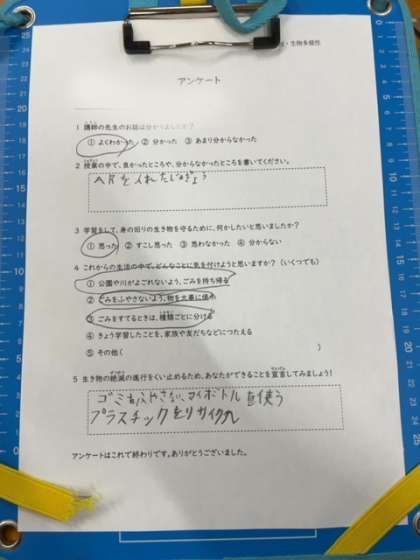 ・生物多様性
アンケート
1 講師の先生のお話は分かりましたか？
① よくわかった ② 分かった ③ あまり分からなかった
2 授業の中で、良かったところや、分からなかったところを書いてください。
ARを入れたじゅぎょう
3 学習をして、身の回りの生き物を守るために、何かしたいと思いましたか？
① 思った ② すこし思った ③ 思わなかった ④ 分からない
4 これからの生活の中で、どんなことに気を付けようと思いますか？（いくつでも）
① 公園や川がよごれないよう、ごみを持ち帰る
② ごみをふやさないよう、物を大事に使う
③ ごみをすてるときは、種類ごとに分ける
④ きょう学習したことを、家族や友だちなどにつたえる
⑤ その他（ ）
5 生き物の絶滅の進行をくい止めるため、あなたができることを宣言してみましょう！
ゴミをふやさない、マイボトルを使う
プラスチックをリサイクル
アンケートはこれで終わりです。ありがとうございました。